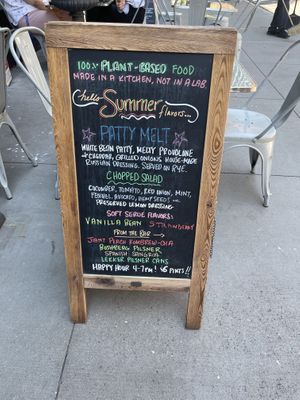 100% PLANT-BASED FOOD
MADE IN A KITCHEN, NOT IN A LAB.
hello Summer flavors...
PATTY MELT
WHITE BEAN PATTY, MELTY PROVOLONE
+ CHEDDAR, GRILLED ONIONS, HOUSE-MADE
RUSSIAN DRESSING. SERVED ON RYE.
CHOPPED SALAD
CUCUMBER, TOMATO, RED ONION, MINT,
FENNEL, AVOCADO, HEMP SEEDS...
PRESERVED LEMON DRESSING
SOFT SERVE FLAVORS:
VANILLA BEAN STRAWBERRY
FROM THE BAR
JUNT PEACH KOMBREW-CHA
BUSHBERG PILSNER
SPANISH SANGRIA
LEEKER PILSNER CANS
HAPPY HOUR 4-7PM! $6 PINTS!!